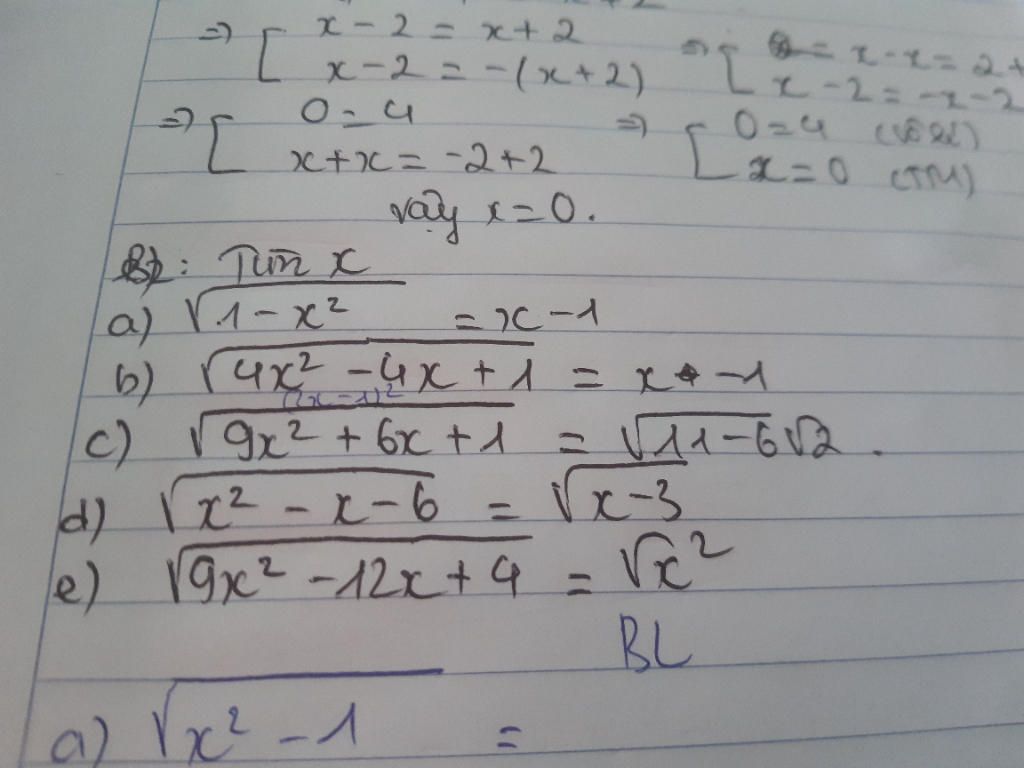 => [ x - 2 = x + 2
x - 2 = -(x + 2) => [ = x - x = 2 +
x - 2 = -x - 2
=> [ 0 = 4
x + x = -2 + 2 => [ 0 = 4
x = 0 (TM)
vậy x = 0.
B2: Tìm x
a) √1 - x² = x - 1
b) √4x² - 4x + 1 = x - 1
(2x - 1)²
c) √9x² + 6x + 1 = √11 - 6√2.
d) √x² - x - 6 = √x - 3
e) √9x² - 12x + 4 = √x²
BL
a) √x² - 1 =